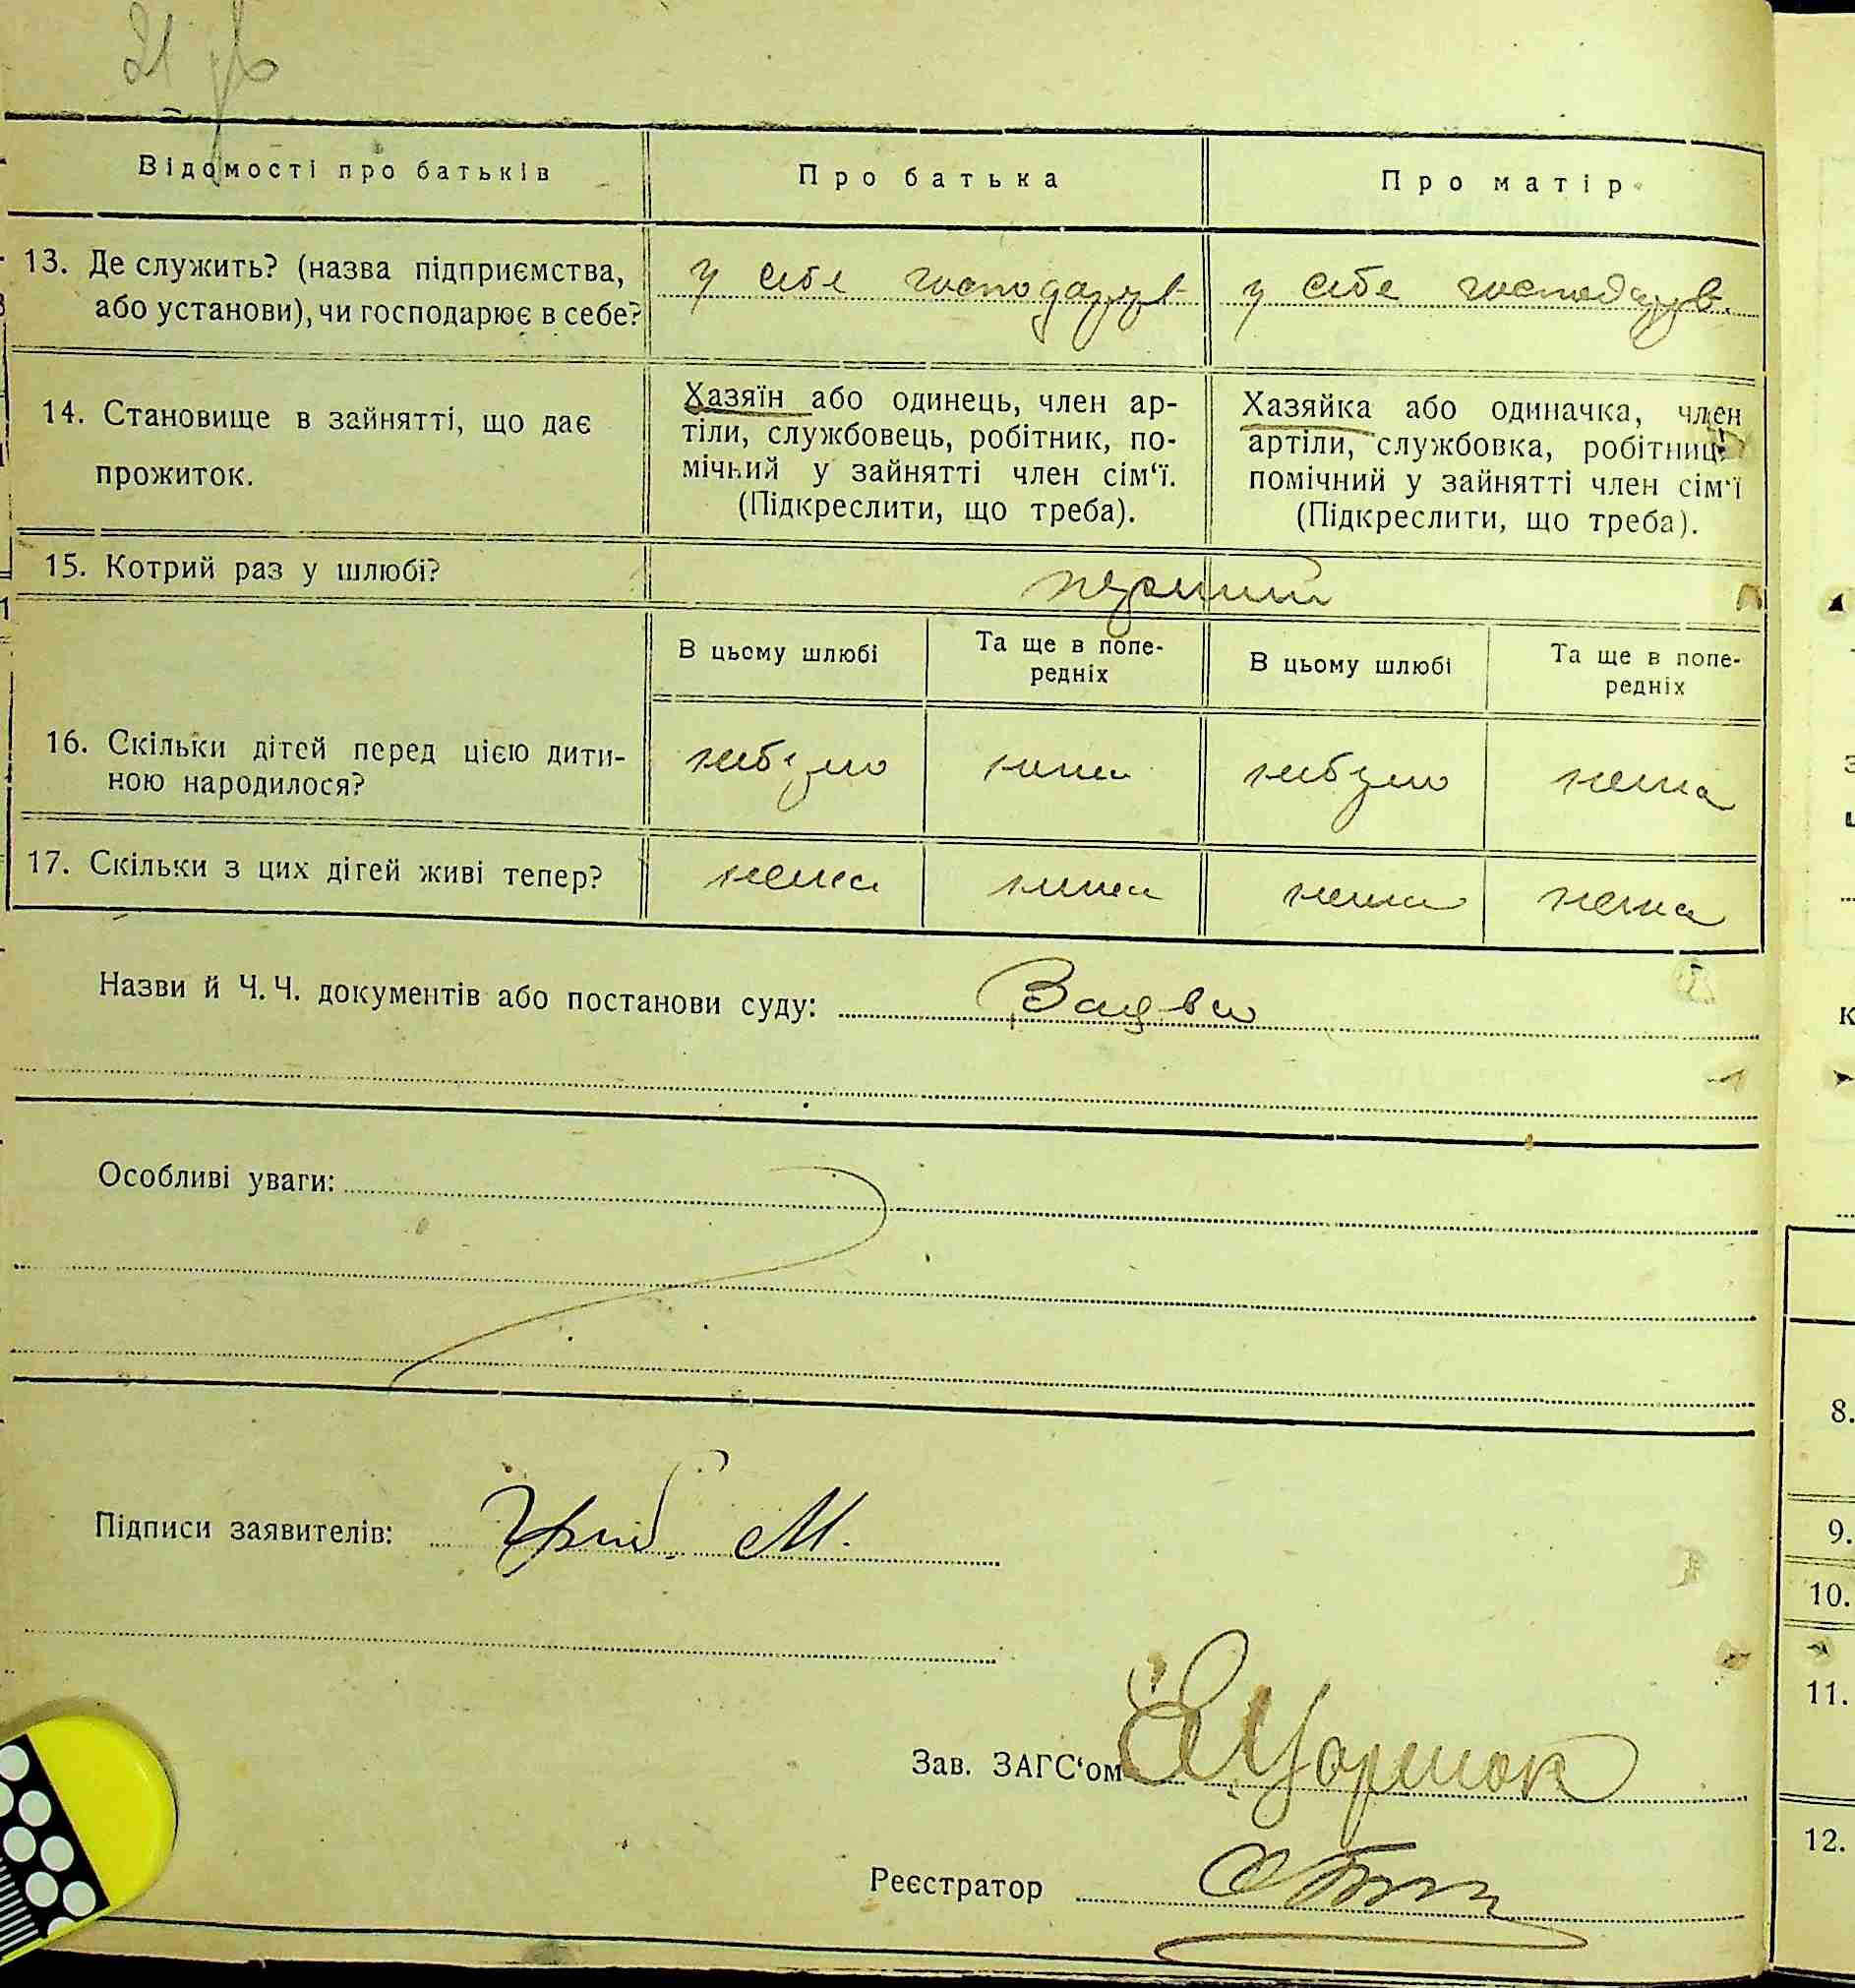 21
Відомості про батьків
Про батька
Про матір
13. Де служить? (назва підприємства,
або установи), чи господарює в себе?
у себе господарув
у себе господарув.
14. Становище в зайнятті, що дає
прожиток.
Хазяїн або одинець, член ар-
тіли, службовець, робітник, по-
мічний у зайнятті член сім'ї.
(Підкреслити, що треба).
Хазяйка або одиначка, член
артіли, службовка, робітниц
помічний у зайнятті член сім'ї
(Підкреслити, що треба).
15. Котрий раз у шлюбі?
перший
В цьому шлюбі
Та ще в попе-
редніх
В цьому шлюбі
Та ще в попе-
редніх
16. Скільки дітей перед цією дити-
ною народилося?
небуло
нема
небуло
нема
17. Скільки з цих дітей живі тепер?
нема
нема
нема
нема
Назви й Ч. Ч. документів або постанови суду:
Особливі уваги:
Підписи заявителів: М.
Зав. ЗАГС'ом
Реєстратор
8.
9.
10.
11.
12.